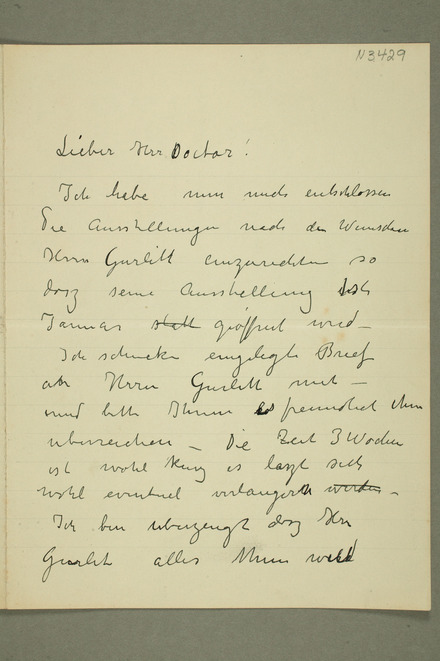 N 3429
Lieber Herr Doctor!
Ich habe nun mich entschlossen
Die Ausstellungen nach den Wunschen
Herrn Gurlitt einzurichten so
dasz seine Ausstellung
Januar statt geöffnet wird —
Ich schicke eingelegte Brief
an Herrn Gurlitt mit —
und bitte Ihnen es freundlich ihm
uberreichen — Die Zeit 3 Wochen
ist wohl kurz es laszt sich
wohl eventuel verlangern werden —
Ich bin uberzeugt dasz Herr
Gurlitt alles thun wird